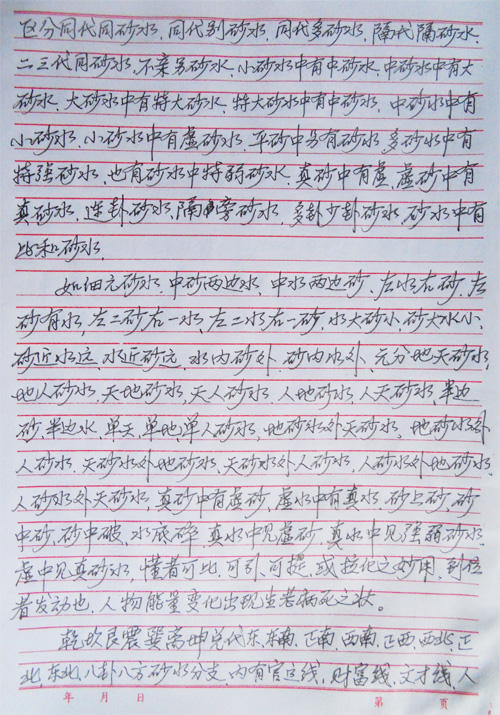 区分同代同砂水，同代别砂水，同代多砂水，隔代隔砂水，
二三代同砂水，不亲另砂水，小砂水中有中砂水，中砂水中有大
砂水，大砂水中有特大砂水，特大砂水中有中砂水，中砂水中有
小砂水，小砂水中有虚砂水，平砂中另有砂水，多砂水中有
特强砂水，也有砂水中特弱砂水，真砂中有虚，虚砂中有
真砂水，连卦砂水，隔旁砂水，多卦少卦砂水，砂水中有
比和砂水，
如细允砂水，中砂两边水，中水两边砂，左水右砂，左
砂右水，左二砂右一水，左二水右一砂，水大砂小，砂大水小，
砂近水远，水近砂远，水内砂外，砂内水外，元分地天砂水，
地人砂水，天地砂水，天人砂水，人地砂水，人天砂水，半边
砂，半边水，单天，单地，单人砂水，地砂水外天砂水，地砂水外
人砂水，天砂水外地砂水，天砂水外人砂水，人砂水外地砂水，
人砂水外天砂水，真砂中有虚砂，虚水中有真水，砂上砂，砂
中砂，砂中破，水底碎，真水中见虚砂，真水中见强弱砂水，
虚中见真砂水，懂者可比，可引，可提，或拉化之妙用，到位
者发动也，人物能量变化出现生老病死之状。
乾坎艮震巽离坤兑代东、东南、正南、西南、正西、西北、正
北、东北，八卦八方砂水分支，内有官运线，财富线，文才线，人
年 月 日 第 页